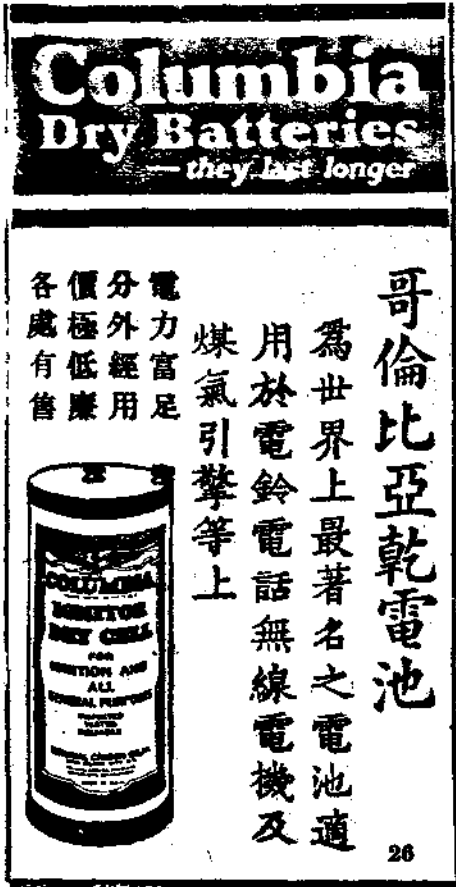 Columbia
Dry Batteries
— they last longer
哥倫比亞乾電池
為世界上最著名之電池適
用於電鈴電話無線電機及
煤氣引擎等上
電力富足
分外經用
價極低廉
各處有售
COLUMBIA
IGNITOR
DRY CELL
FOR
IGNITION AND
ALL
GENERAL PURPOSES
26